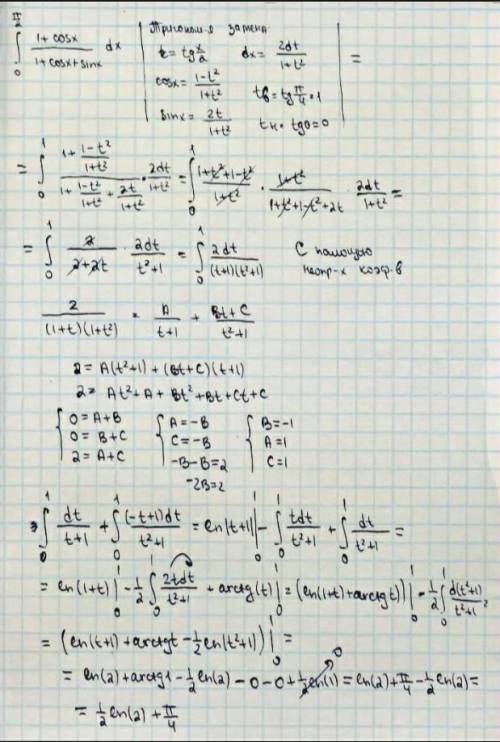 ∫₀^{π/2} (1+cosx)/(1+cosx+sinx) dx | Тригоном-я замена: t = tg x/2 dx = 2dt/(1+t²) cosx = (1-t²)/(1+t²) tв = tg π/4 = 1 sinx = 2t/(1+t²) tн = tg0 = 0 | =
= ∫₀¹ (1 + (1-t²)/(1+t²))/(1 + (1-t²)/(1+t²) + 2t/(1+t²)) · 2dt/(1+t²) = ∫₀¹ (1+t²+1-t²)/(1+t²) · (1+t²)/(1+t²+1-t²+2t) · 2dt/(1+t²) =
= ∫₀¹ 2/(2+2t) · 2dt/(t²+1) = ∫₀¹ 2dt/((t+1)(t²+1)) С помощью
неопр-х коэф-в
2/((1+t)(1+t²)) = A/(t+1) + (Bt+C)/(t²+1)
2 = A(t²+1) + (Bt+C)(t+1)
2 = At²+A+Bt²+Bt+Ct+C
{ 0=A+B { A=-B { B=-1
0=B+C C=-B A=1
2=A+C -B-B=2 C=1
-2B=2
∫₀¹ dt/(t+1) + ∫₀¹ (-t+1)dt/(t²+1) = ln|t+1| |₀¹ - ∫₀¹ tdt/(t²+1) + ∫₀¹ dt/(t²+1) =
= ln(1+t) |₀¹ - 1/2 ∫₀¹ 2tdt/(t²+1) + arctg(t) |₀¹ = (ln(1+t)+arctgt) |₀¹ - 1/2 ∫₀¹ d(t²+1)/(t²+1) =
= (ln(t+1)+arctgt - 1/2 ln(t²+1)) |₀¹ =
= ln(2)+arctg1 - 1/2 ln(2) - 0 - 0 + 1/2 ln(1) 0 = ln(2)+π/4 - 1/2 ln(2) =
= 1/2 ln(2) + π/4